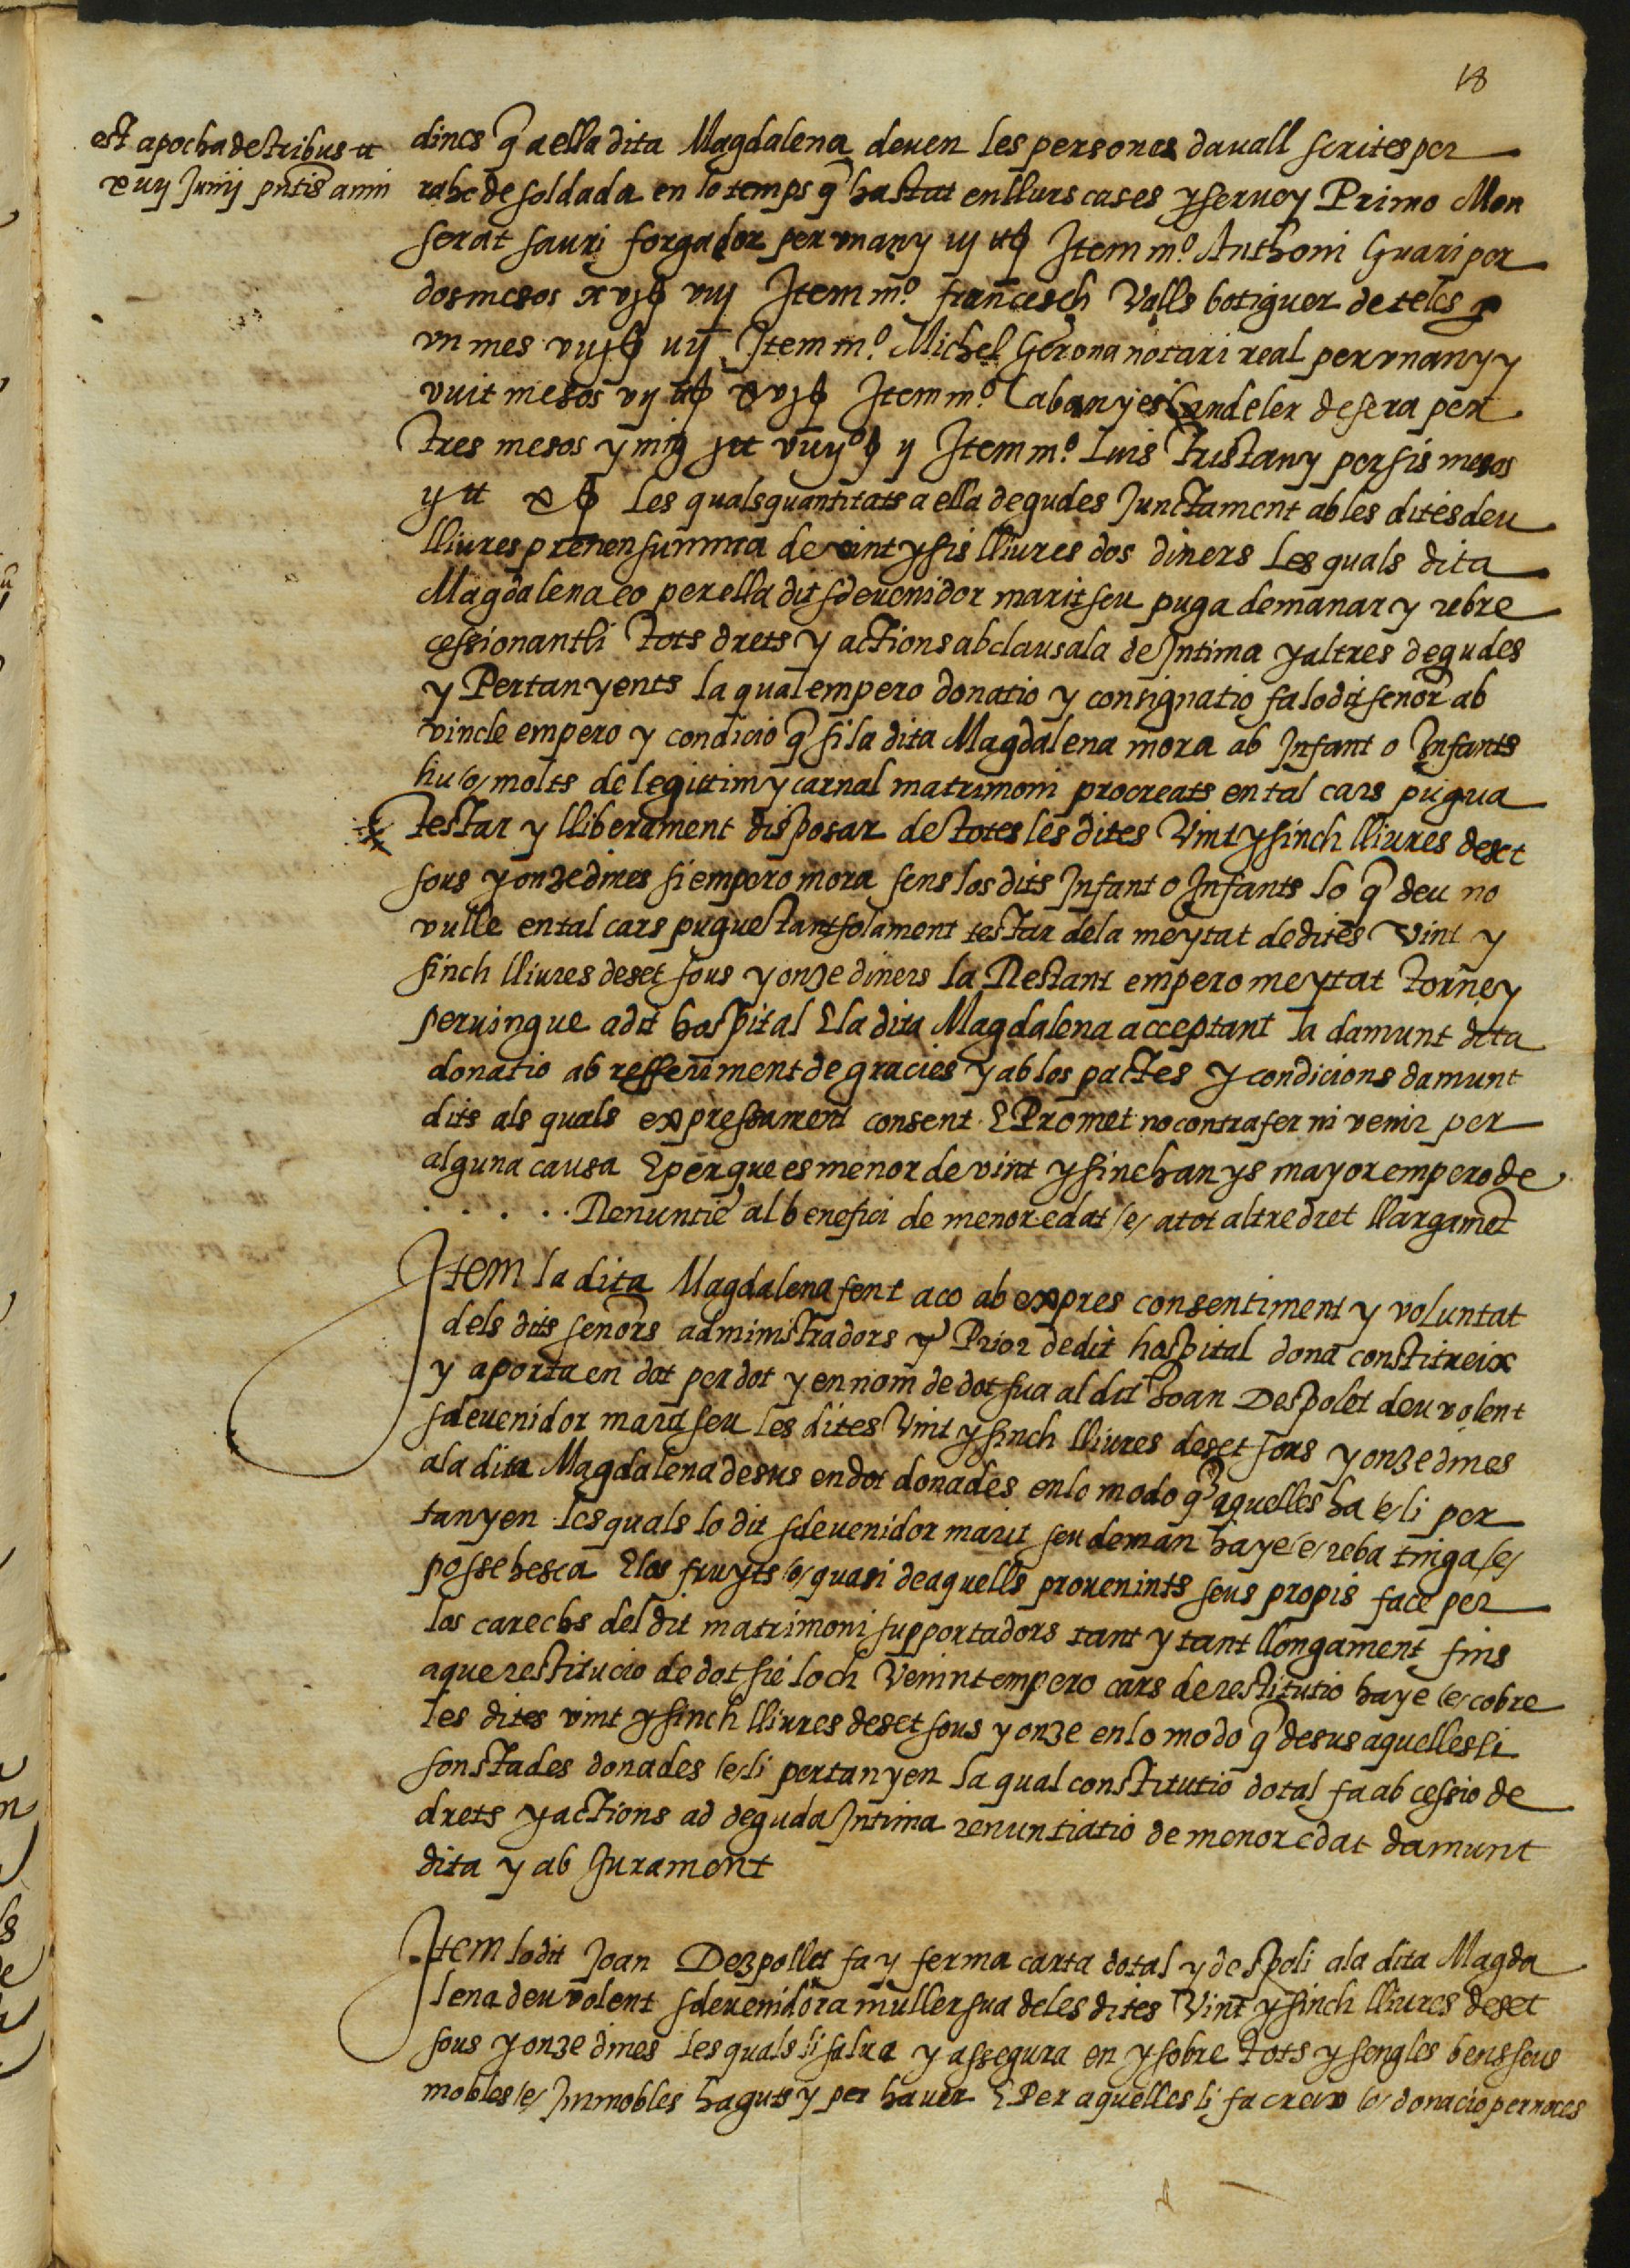 18
est apocha de tribus ll
xviij Junij pntis anni
dines q̃ a ella dita Magdalena deuen les persones dauall scrites per
rahe de soldada en lo temps q̃ ha stat en llurs cases y seruey Primo Mon
serat sauri forgador per vn any iij ll ß Item mº Anthoni Guari per
dos mesos xvjß viij Item mº francesch Valls botiguer de teles p
vn mes viijß iiij Item mº Michel Gerona notari real per vn any y
vuit mesos vij ll ß xvjß Item mº Cabanyes Candeler de sera per
tres mesos y mig j ll viiijº ß ij Item mº Luis Tristany per sis mesos
ij ll x ß Les quals quantitats a ella degudes Junctament ab les dites deu
lliures prenen summa de vint y sis lliures dos diners Les quals dita
Magdalena eo per ella dit sdeuenidor marit seu puga demanar y rebre
cessionantli tots drets y actions ab clausala de Intima y altres degudes
y Pertanyents la qual empero donatio y consignatio fa lo dit senor ab
vincle empero y condicio q̃ si la dita Magdalena mora ab Infant o Infants
hu /o/ molts de legittim y carnal matrimoni procreats en tal cars pugua
testar y lliberament disposar de totes les dites Vint y sinch lliures deset
sous y onze dines si empero mora sens los dits Infant o Infants lo q̃ deu no
vulle en tal cars pugue stant solament testar de la meytat de dites Vint y
sinch lliures deset sous y onze diners la Restant empero meytat torne y
peruingue a dit hospital E la dita Magdalena acceptant la damunt dita
donatio ab refferiment de gracies y ab los pactes y condicions damunt
dits als quals expressament consent E Promet no contrafer ni venir per
alguna causa E perque es menor de vint y sinch anys mayor empero de
. . . . . Renuntie al benefici de menor edat /e/ a tot altre dret llargamẽt
Item la dita Magdalena fent aco ab expres consentiment y voluntat
dels dits senors administradors y Prior de dit hospital dona constitueix
y aporta en dot per dot y en nom de dot sua al dit Joan Despolet deu volent
sdeuenidor marit seu les dites Vint y sinch lliures deset sous y onze dines
a la dita Magdalena desus en dot donades en lo modo q̃ aquelles ha /e/ li per
tanyen les quals lo dit sdeuenidor marit seu deman haye /e/ reba tinga /e/
possehesca E los fruyts /o/ quasi de aquells prouenints seus propis face per
los carechs del dit matrimoni supportadors tant y tant llongament fins
a que restitucio de dot sie loch Venint empero cars de restitutio haye /e/ cobre
les dites vint y sinch lliures deset sous y onze en lo modo q̃ desus aquelles li
son stades donades /e/ li pertanyen la qual constitutio dotal fa ab cessio de
drets y actions ad deguda Intima renuntiatio de menor edat damunt
dita y ab Jurament
Item lo dit Joan Dezpollet fa y ferma carta dotal y despoli a la dita Magda
lena deu volent sdeuenidora muller sua de les dites Vint y sinch lliures deset
sous y onze dines les quals li salua y assegura en y sobre tots y sengles bens seus
mobles /e/ Immobles haguts y per hauer E Per aquelles li fa creix /o/ donacio per noces